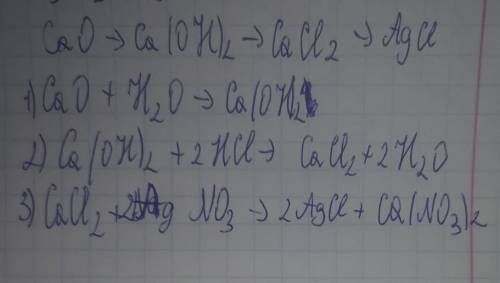 CaO → Ca(OH)₂ → CaCl₂ → AgCl
1) CaO + H₂O → Ca(OH)₂
2) Ca(OH)₂ + 2HCl → CaCl₂ + 2H₂O
3) CaCl₂ + 2AgNO₃ → 2AgCl + Ca(NO₃)₂